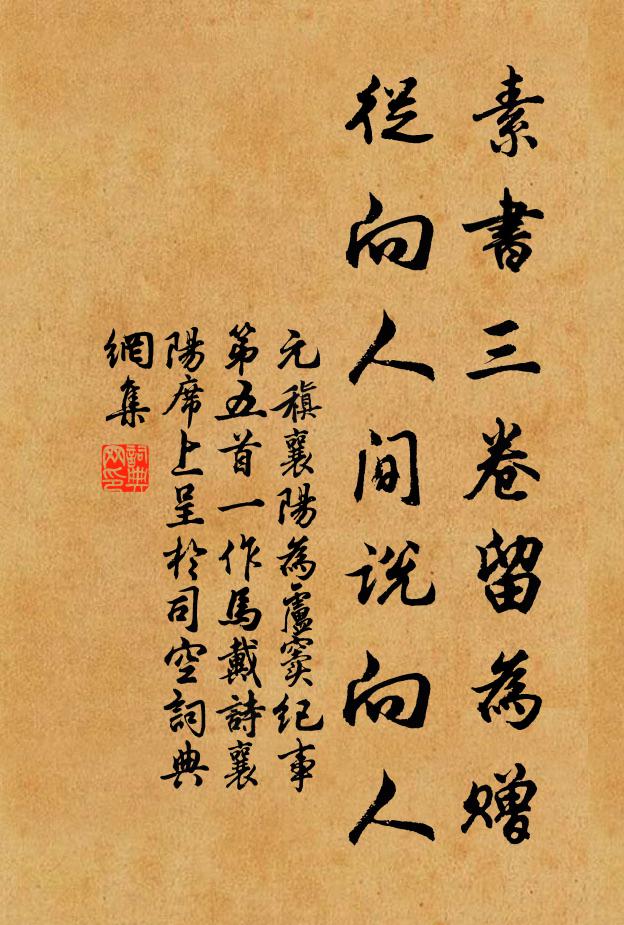 素書三卷留為贈
從向人間說向人
元稹襄陽為盧竇紀事
第五首一作馬戴詩襄
陽席上呈於司空詞典
網集
詞典
网印